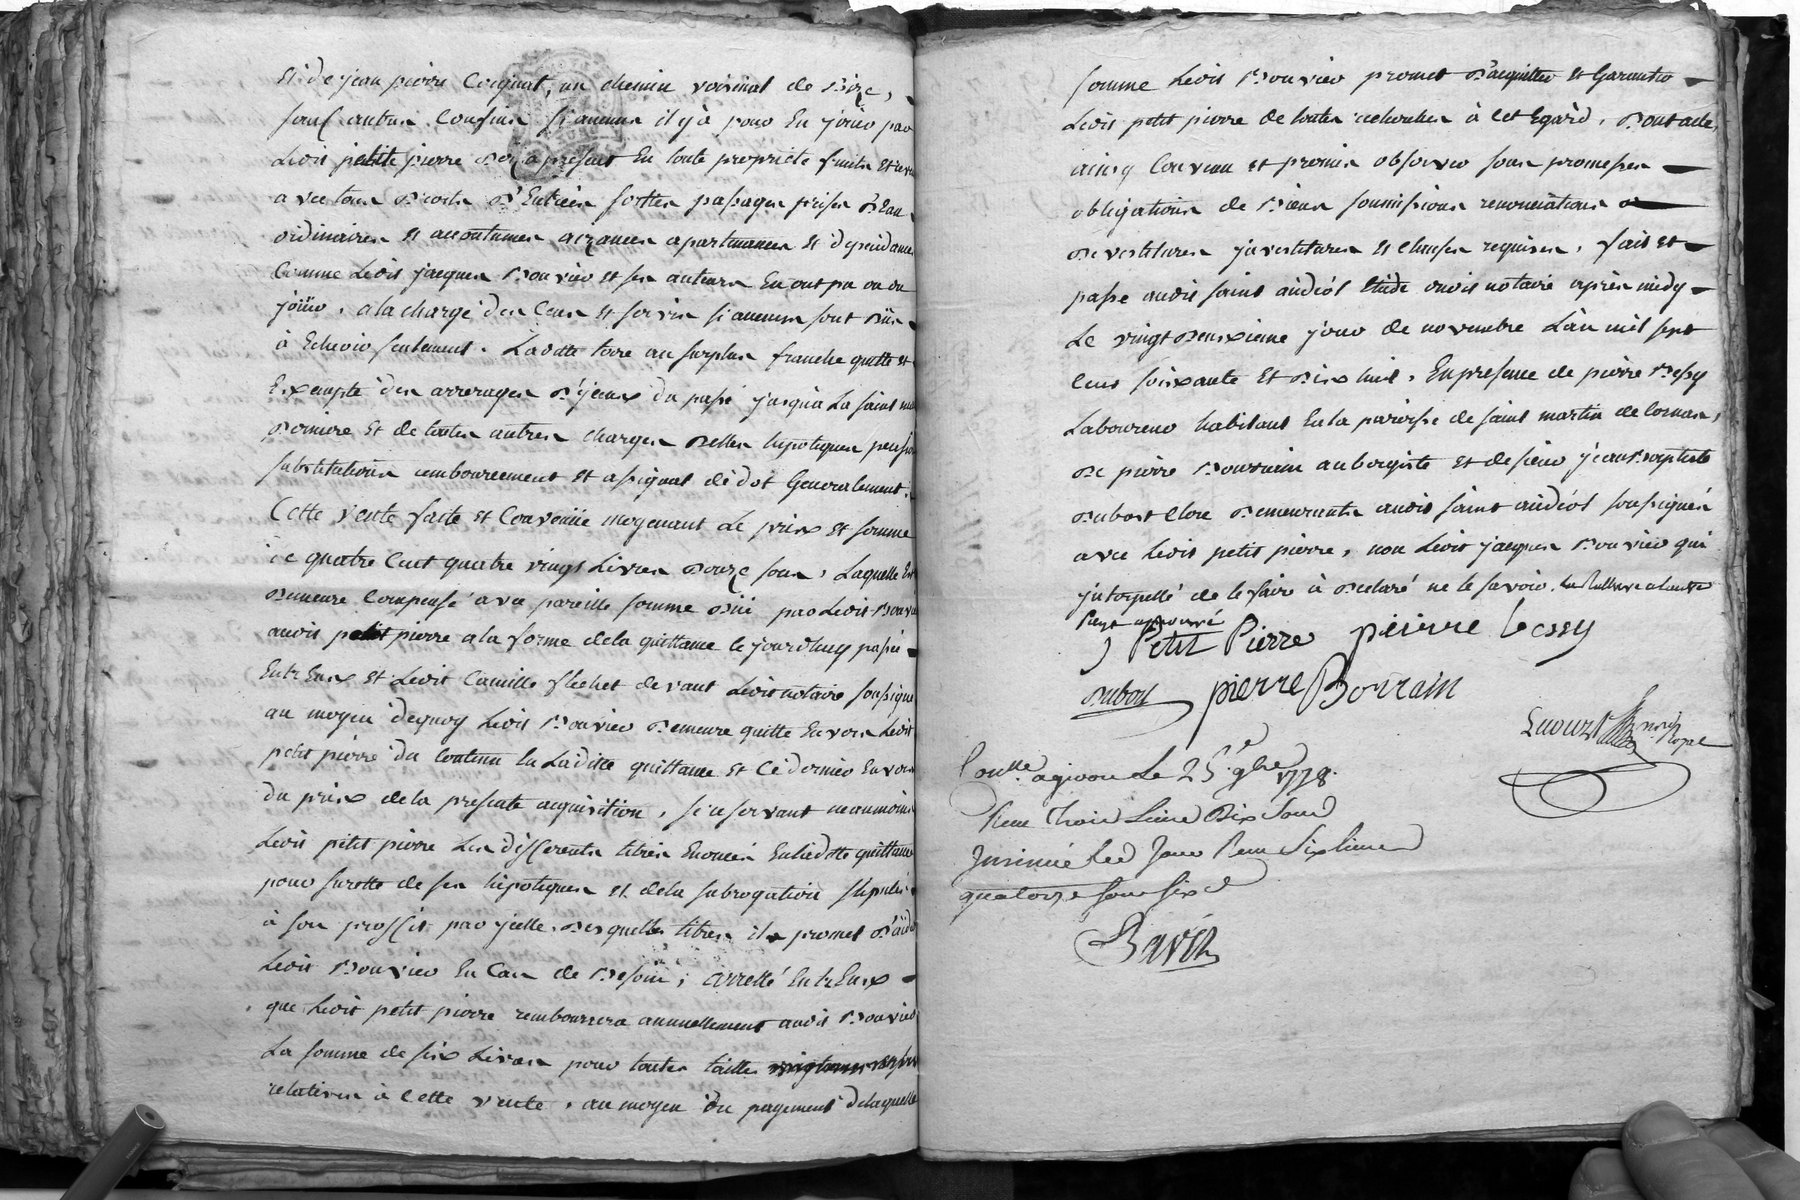 et de jean pierre Coignat, un chemin voisinal de Bise,
sauf autres Confins si aucuns il y à pour En joüir par
Ledit petit pierre des a present En toute proprieté fruits et
avec tous Droits D'Entrées sorties passages prises D'eau
ordinaires et accoutumes aizances apartenances et dependances
Comme Ledit jacques Bouvier et ses auteurs En ont pu ou du
joüir, a la charge des Cens et servis si aucuns sont Dûs
à Echeoir seulement. Ladite terre au surplus franche quitte et
Exempte des arrerages D'jceux du passé jusqu'à La saint
Derniere Et de toutes autres charges Dettes hipoteques
substitutions remboursement et assignat de dot Generalement.
Cette vente faite et Convenüe moyenant Le prix et somme
de quatre Cent quatre vingt Livres Douze sous, Laquelle Est
Demeuré Compensé avec pareille somme Düe par Ledit Bouvier
audit petit pierre a la forme de la quittance ce jourdhuy passée
Entr'Eux et Ledit Camille flechet devant Ledit notaire soussigné
au moyen dequoy Ledit Bouvier Demeure quitte Envers Ledit
petit pierre du Contenu En Ladite quittance et Ce dernier Envers
du prix de la presente acquisition, se reservant neanmoins
Ledit petit pierre Les differents titres Enoncés En Ladite quittance
pour surette de ses hipoteques et de la subrogation stipulée
à son proffit par jcelle. Desquels titres il promet D'aider
Ledit Bouvier En Cas de Besoin; arretté Entr'Eux
que Ledit petit pierre remboursera annuellement audit Bouvier
La somme de six Livres pour toutes tailles
relatives à Cette vente, au moyen du payement de laquelle
somme Ledit Bouvier promet D'acquitter et Garantir
Ledit petit pierre de toutes recherches à Cet Egard. Dont acte,
ainsy Convenu et promis observer sous promesses
obligations de Biens soumissions renonciations
Devestitures jnvestitures et clauses requises, fait et
passé audit saint andéol Etude dudit notaire après midy
Le vingt Deuxieme jour de novembre L'an mil sept
Cent soixante Et Dix huit, En presence de pierre Bessy
Laboureur habitant En la paroisse de saint martin de Cornas,
De pierre Bourrain aubergiste et de sieur jean Baptiste
Dubost Clerc Demeurants audit saint andéol soussignés
avec Ledit petit pierre, non Ledit jacques Bouvier qui
jnterpellé de le faire à Declaré ne le savoir.
approuvé
Petit Pierre pierre bessy
Dubost pierre Borrain
notre Royal
Contlle. a givors Le 25e 9bre 1778.
Reçu Trois Livres Dix Sous
Jnsinué Led Jour Reçu Six livres
quatorze sous six d